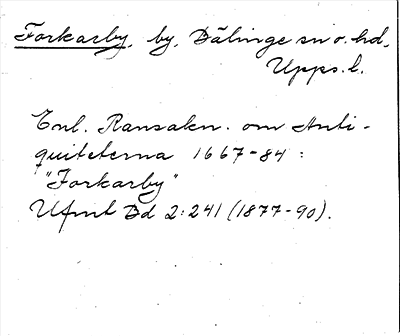 Forkarby, by, Bälinge sn o. hd,
Upps. l.
Enl. Ransakn. om Anti-
quiteterna 1667-84:
"Forkarby"
Ufmt Bd 2:241 (1877-90).